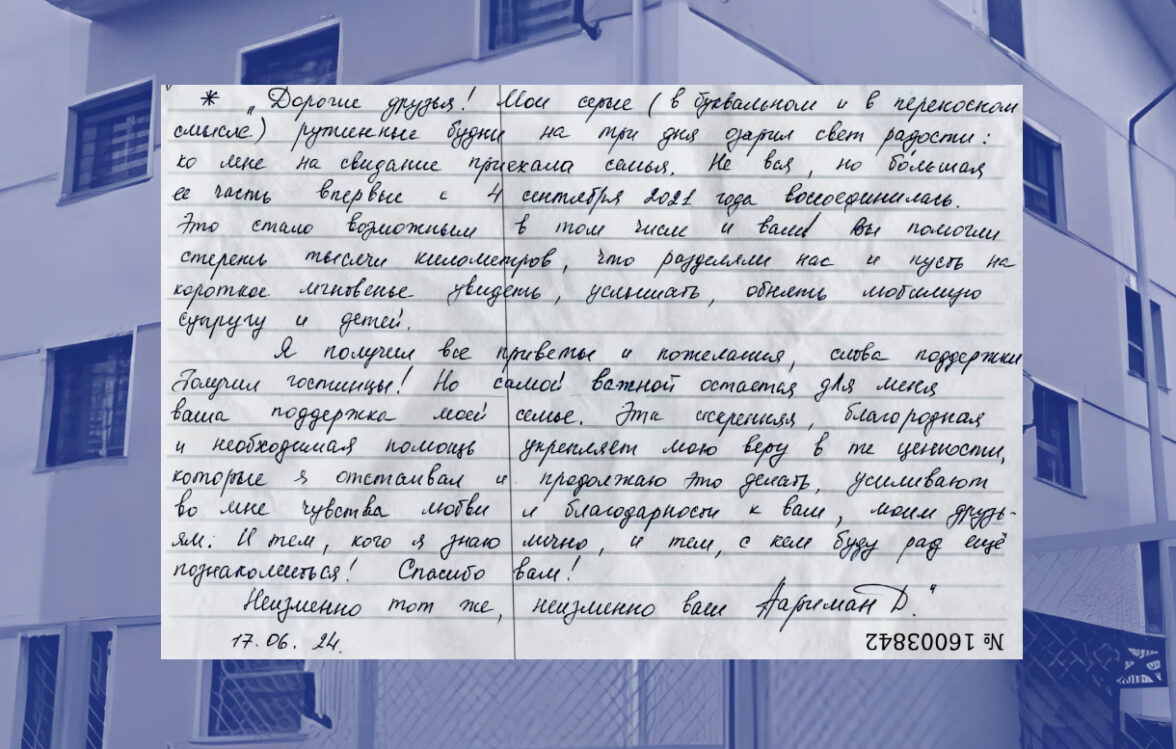 * „Дорогие друзья! Мои серые (в буквальном и в переносном
смысле) рутинные будни на три дня озарил свет радости:
ко мне на свидание приехала семья. Не вся, но бо́льшая
ее часть впервые с 4 сентября 2021 года воссоединилась.
Это стало возможным в том числе и вами! Вы помогли
стереть тысячи километров, что разделяли нас и пусть на
короткое мгновенье увидеть, услышать, обнять любимую
супругу и детей.
Я получил все приветы и пожелания, слова поддержки
Получил гостинцы! Но самой важной остается для меня
ваша поддержка моей семье. Эта искренняя, благородная
и необходимая помощь укрепляет мою веру в те ценности,
которые я отстаивал и продолжаю это делать, усиливают
во мне чувства любви и благодарности к вам, моим друзь-
ям. И тем, кого я знаю лично, и тем, с кем буду рад ещё
познакомиться! Спасибо вам!
Неизменно тот же, неизменно ваш Нариман Д."
17.06.24.
№ 16003842